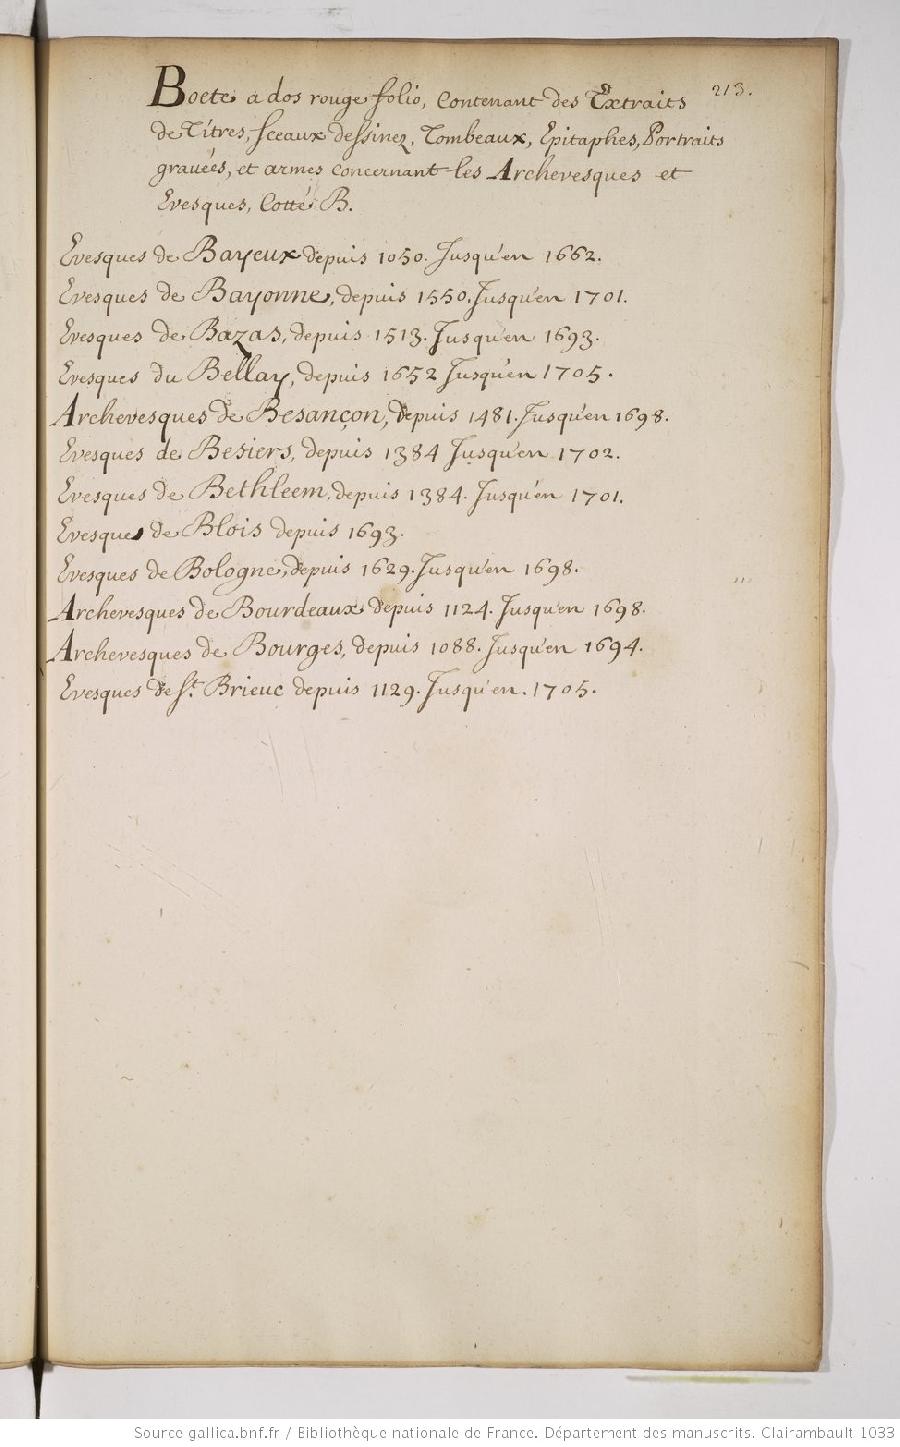 213.
Boete a dos rouge folio, Contenant des Extraits
de Titres, Sceaux dessinez, Tombeaux, Epitaphes, Portraits
gravées, et armes concernant les Archevesques et
Evesques, Cotté B.
Evesques de Bayeux depuis 1050. Jusqu'en 1662.
Evesques de Bayonne, depuis 1550. Jusqu'en 1701.
Evesques de Bazas, depuis 1513. Jusqu'en 1693.
Evesques du Bellay, depuis 1652 Jusqu'en 1705.
Archevesques de Besançon, depuis 1481. Jusqu'en 1698.
Evesques de Besiers, depuis 1384 Jusqu'en 1702.
Evesques de Bethleem, depuis 1384. Jusqu'en 1701.
Evesques de Blois depuis 1693.
Evesques de Bologne, depuis 1629. Jusqu'en 1698.
Archevesques de Bourdeaux depuis 1124. Jusqu'en 1698.
Archevesques de Bourges, depuis 1088. Jusqu'en 1694.
Evesques de St. Brieuc depuis 1129. Jusqu'en. 1705.
Source gallica.bnf.fr / Bibliothèque nationale de France. Département des manuscrits. Clairambault 1033